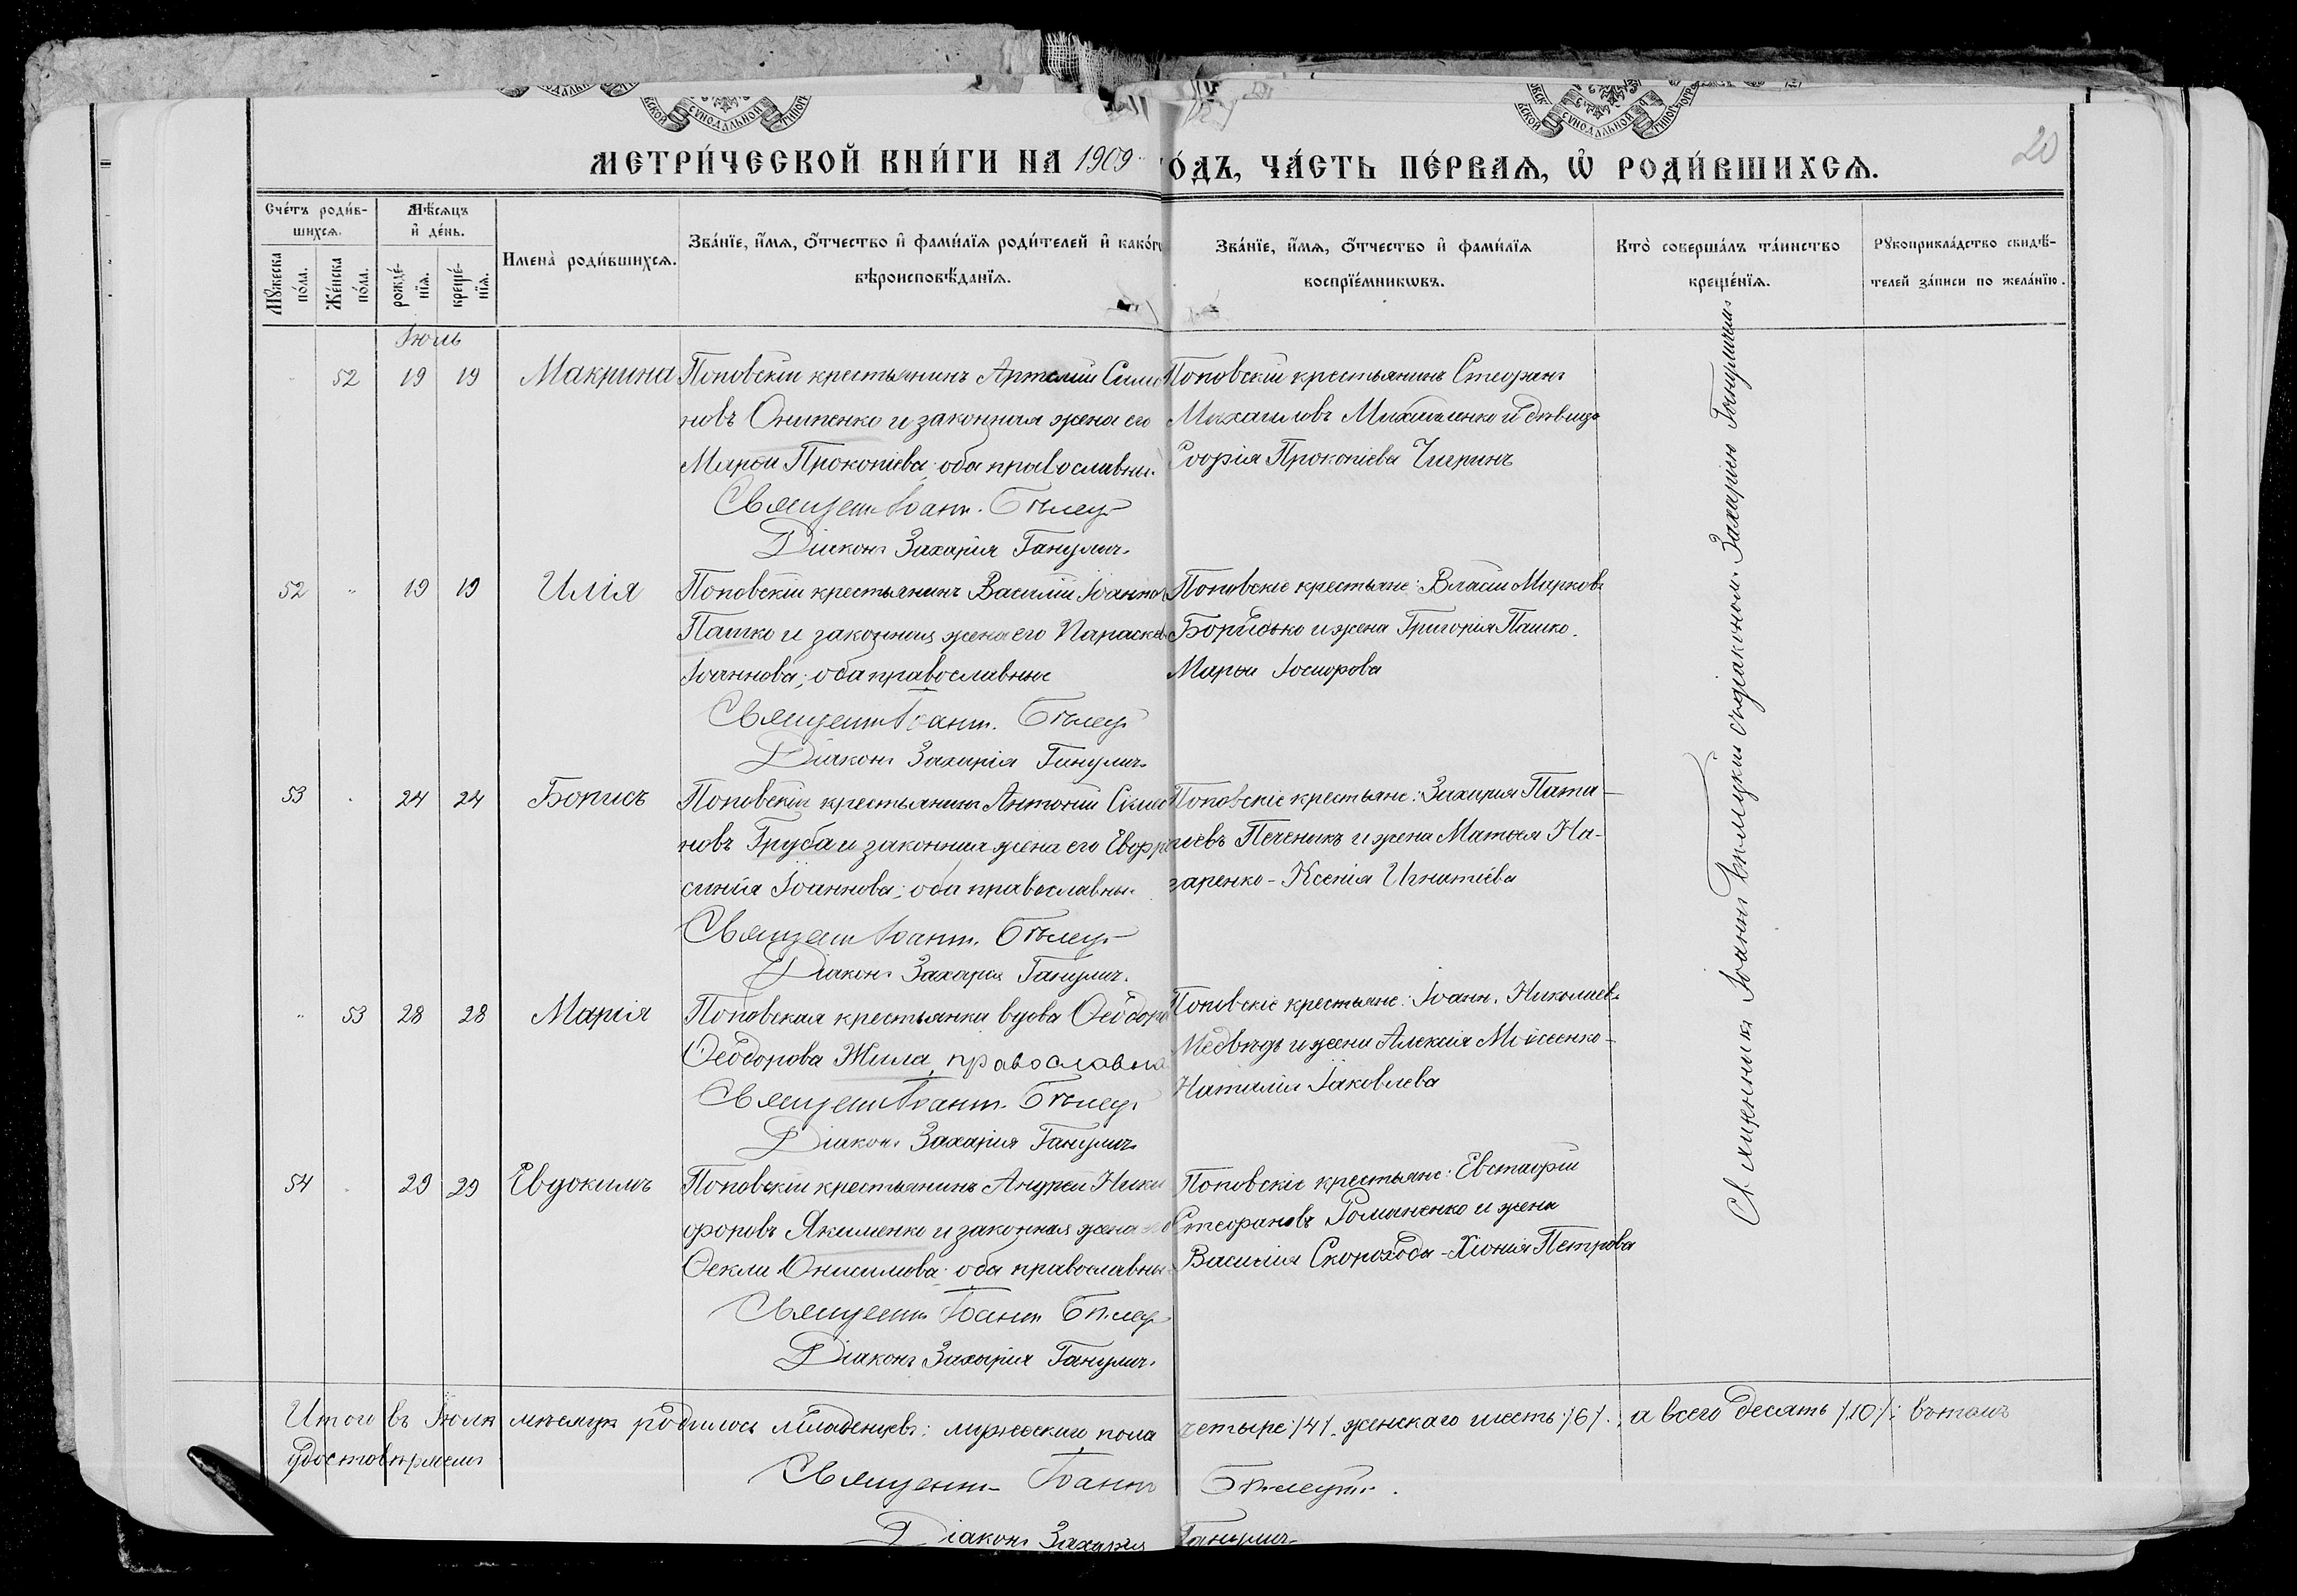 МЕТРИ́ЧЕСКОЙ КНИ́ГИ НА 1909 ГО́ДЪ, ЧА́СТЬ ПЕ́РВАѦ, Ѡ РОДИ́ВШИХСѦ.
20
Сче́тъ роди́в-
шихсѧ.
Мꙋжеска по́ла.
Же́нска по́ла.
Мѣ́сѧцъ
и де́нь.
рожде́-
нїѧ.
креще́-
нїѧ.
Имена̀ роди́вшихсѧ.
Зва́нїе, и́мѧ, ѻ́тчество и фами́лїѧ роди́телей и како́гѡ
вѣроисповѣ́данїѧ.
Зва́нїе, и́мѧ, ѻ́тчество и фами́лїѧ
воспрїе́мникѡвъ.
Кто̀ соверша́лъ та́инство
креще́нїѧ.
Рꙋкоприкла́дство свидѣ́-
телей за́писи по жела́нїю.
Іюль
52 19 19 Макрина
Поповскій крестьянинъ Артемій Симо
новъ Онипенко и законная жена его
Марѳа Прокопіева; оба православны.
Священ Іоанн. Бѣлец
Діаконъ Захарія Ганулич.
Поповскій крестьянинъ Стефанъ
Михаиловъ Михайленко и дѣвица
Софія Прокопіева
52 " 19 19 Илія
Поповскій крестьянинъ Василій Іоаннов
Пашко и законная жена его Параскев
Іоаннова; оба православные
Священ Іоанн. Бѣлец
Діаконъ Захарія Ганулич.
Поповскіе крестьяне: Власій Марковъ
и жена Григорія Пашко
Марѳа
53 24 24 Борисъ
Поповскій крестьянинъ Антоній Симо
новъ Груба и законная жена его Евфро
синія Іоаннова; оба православны.
Священ Іоанн. Бѣлец
Діаконъ Захарія Ганулич.
Поповскіе крестьяне: Захарія
Печеникъ и жена Матѳея На-
заренко - Ксенія Игнатіева
" 53 28 28 Марія
Поповская крестьянка вдова Ѳеодора
Ѳеодорова Жила, православна
Священ Іоанн. Бѣлец
Діаконъ Захарія Ганулич.
Поповскіе крестьяне: Іоанн. Николаев.
Медвѣдь и жена Алексія Моисеенко-
Наталія Іаковлева
54 29 29 Евдокимъ
Поповскій крестьянинъ Андрей Ники
форовъ Якименко и законная жена его
Ѳекла Онисимова; оба православны
Священ Іоанн Бѣлец
Діаконъ Захарія Ганулич.
Поповскіе крестьяне: Евстафій
Стефановъ Романенко и жена
Василія Скорохода - Хіонія Петрова
Священникъ Іоаннъ Бѣлецкій съ діакономъ Захаріею Гануличем.
Итого въ Іюлѣ мѣсяцѣ родилось младенцевъ: мужескаго пола четыре /4/, женскаго шесть /6/, а всего десять /10/; въ томъ
удостовѣряемъ
Священник Іоаннъ Бѣлецкій.
Діаконъ Захарія Ганулич.